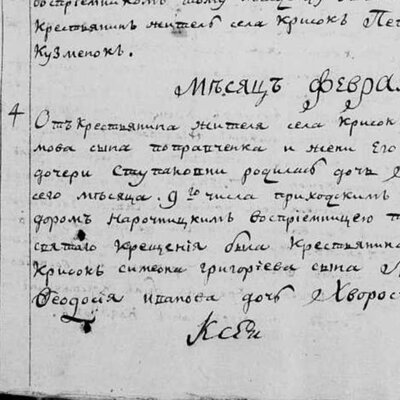 воспріемникомъ
Крестьянинъ житель села Крисокъ
Кузменокъ.
Мѣсяцъ Февра
4
Отъ Крестьянина жителя села Крисок
мова сына поправченка и жени Его
дочери Ступаковни родилась дочь
сего мѣсяца. 9го числа приходскимъ
доромъ Нарочницкимъ воспріемницею
святаго Крещенія была Крестьянина
Крисокъ симеона григоріева сына
Феодосія иванова дочь Хворос
Ксен